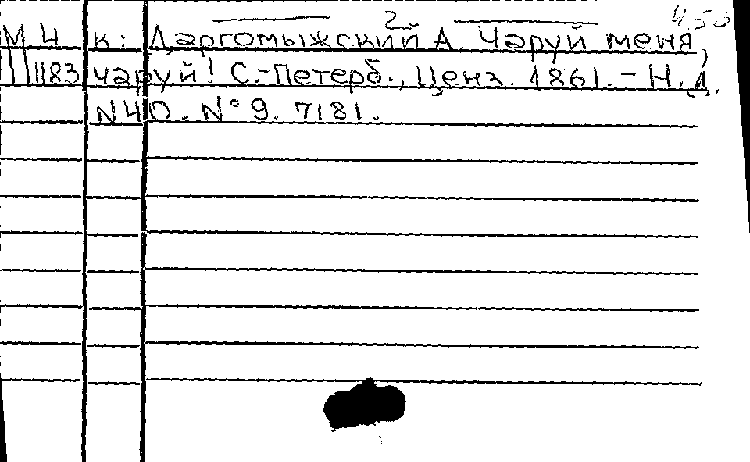 2
М 4 к: Даргомыжский А. Чаруй меня,
11183 чаруй! С.-Петерб., Ценз. 1861. – Н.д.
N40. N° 9. 7181.